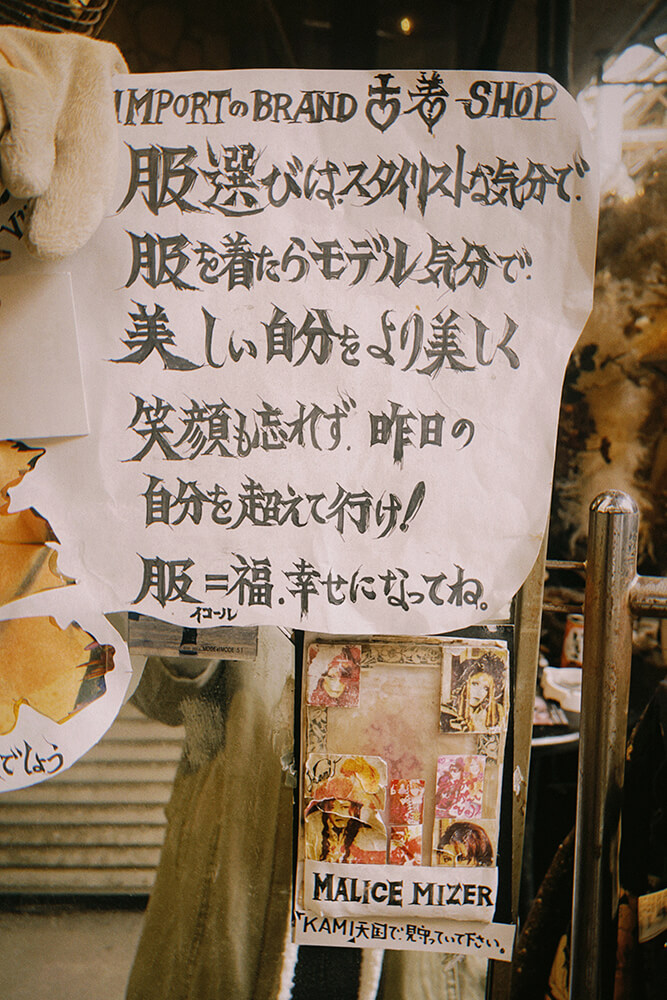 IMPORTのBRAND古着SHOP
服選びは、スタイリストな気分で、
服を着たらモデル気分で、
美しい自分をより美しく
笑顔も忘れず、昨日の
自分を超えて行け!
服=福、幸せになってね。
イコール
でしょう
MALICE MIZER
「KAMI」天国で見守っていて下さい。